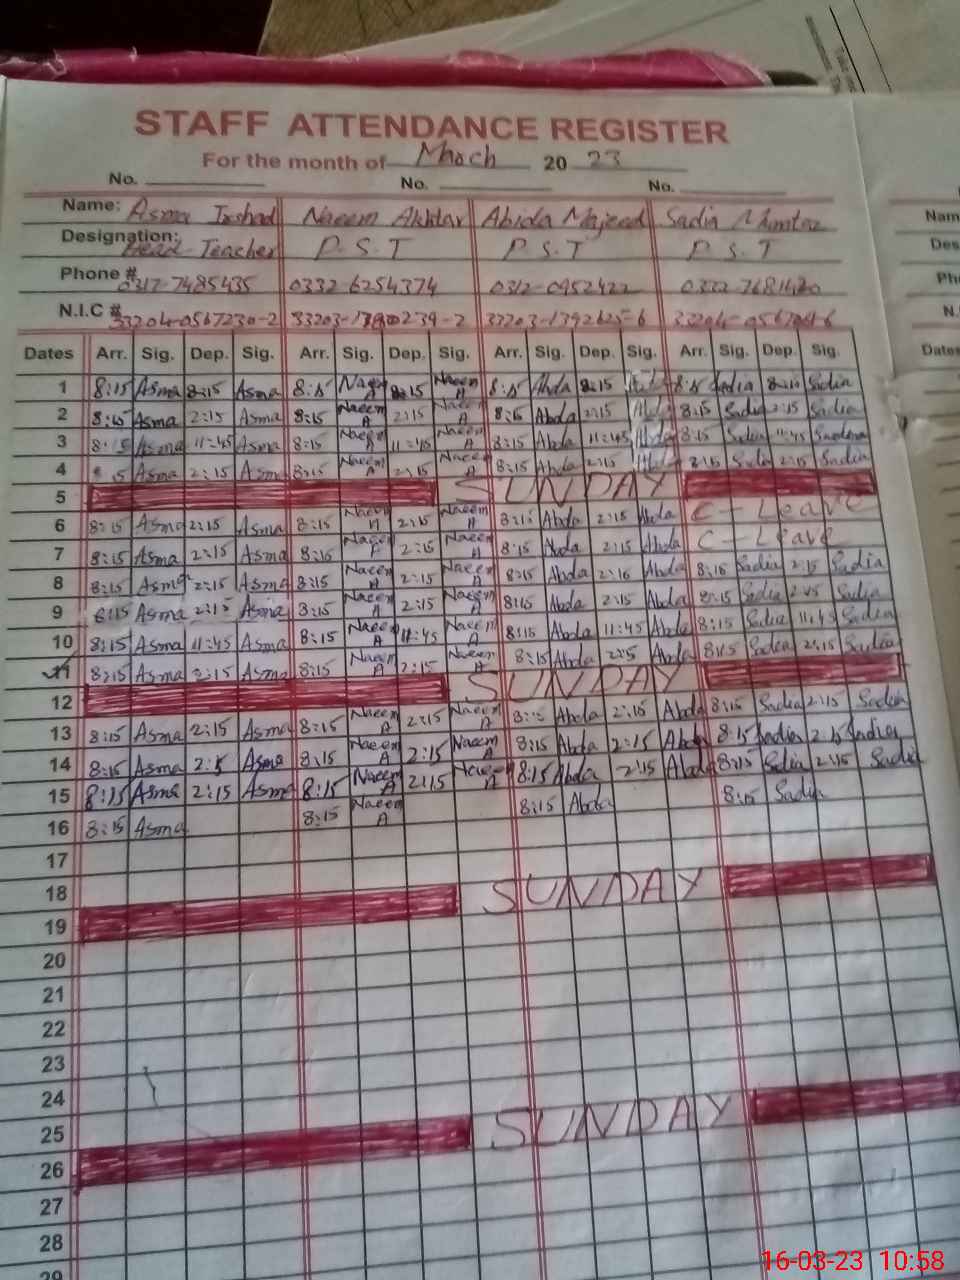 STAFF ATTENDANCE REGISTER
For the month of March 2023
No. No. No.
Name: Asma Irshad Naeem Akhtar Abida Majeed Sadia Mumtaz
Designation: Head-Teacher P.S.T P.S.T P.S.T
Phone # 0317-7485435 0332-6254374 0312-0952422
N.I.C # 33204-0567230-2
Dates Arr. Sig. Dep. Sig. Arr. Sig. Dep. Sig. Arr. Sig. Dep. Sig. Arr. Sig. Dep. Sig.
1 8:15 Asma 2:15 Asma 8:15 Naeem A 2:15 Naeem A 8:15 Abda 2:15 8:15 Sadia 2:15 Sadia
2 8:15 Asma 2:15 Asma 8:15 Naeem A 2:15 Naeem A 8:15 Abda 2:15 Abda 8:15 Sadia 2:15 Sadia
3 8:15 Asma 11:45 Asma 8:15 Naeem A 11:45 Naeem A 8:15 Abda 11:45 Abda 8:15 Sadia 11:45 Sadia
4 Asma 2:15 Asma 8:15 Naeem A 2:15 Naeem A 8:15 Abda 2:15 Abda 8:15 Sadia 2:15 Sadia
5 SUNDAY
6 8:15 Asma 2:15 Asma 8:15 Naeem A 2:15 Naeem A 8:15 Abda 2:15 Abda C-Leave
7 8:15 Asma 2:15 Asma 8:15 Naeem 2:15 Naeem A 8:15 Abda 2:15 Abda C-Leave
8 8:15 Asma 2:15 Asma 8:15 Naeem A 2:15 Naeem A 8:15 Abda 2:15 Abda 8:15 Sadia 2:15 Sadia
9 8:15 Asma 2:15 Asma 8:15 Naeem A 2:15 Naeem A 8:15 Abda 2:15 Abda 8:15 Sadia 2:15 Sadia
10 8:15 Asma 11:45 Asma 8:15 Naeem A 11:45 Naeem A 8:15 Abda 11:45 Abda 8:15 Sadia 11:45 Sadia
11 8:15 Asma 2:15 Asma 8:15 Naeem A 2:15 Naeem A 8:15 Abda 2:15 Abda 8:15 Sadia 2:15 Sadia
12 SUNDAY
13 8:15 Asma 2:15 Asma 8:15 Naeem A 2:15 Naeem A 8:15 Abda 2:15 Abda 8:15 Sadia 2:15 Sadia
14 8:15 Asma 2:15 Asma 8:15 Naeem A 2:15 Naeem A 8:15 Abda 2:15 Abda 8:15 Sadia 2:15 Sadia
15 8:15 Asma 2:15 Asma 8:15 Naeem A 2:15 Naeem A 8:15 Abda 2:15 Abda 8:15 Sadia 2:15 Sadia
16 8:15 Asma 8:15 Naeem A 8:15 Abda 8:15 Sadia
17
18
19 SUNDAY
20
21
22
23
24
25
26 SUNDAY
27
28
29
16-03-23 10:58